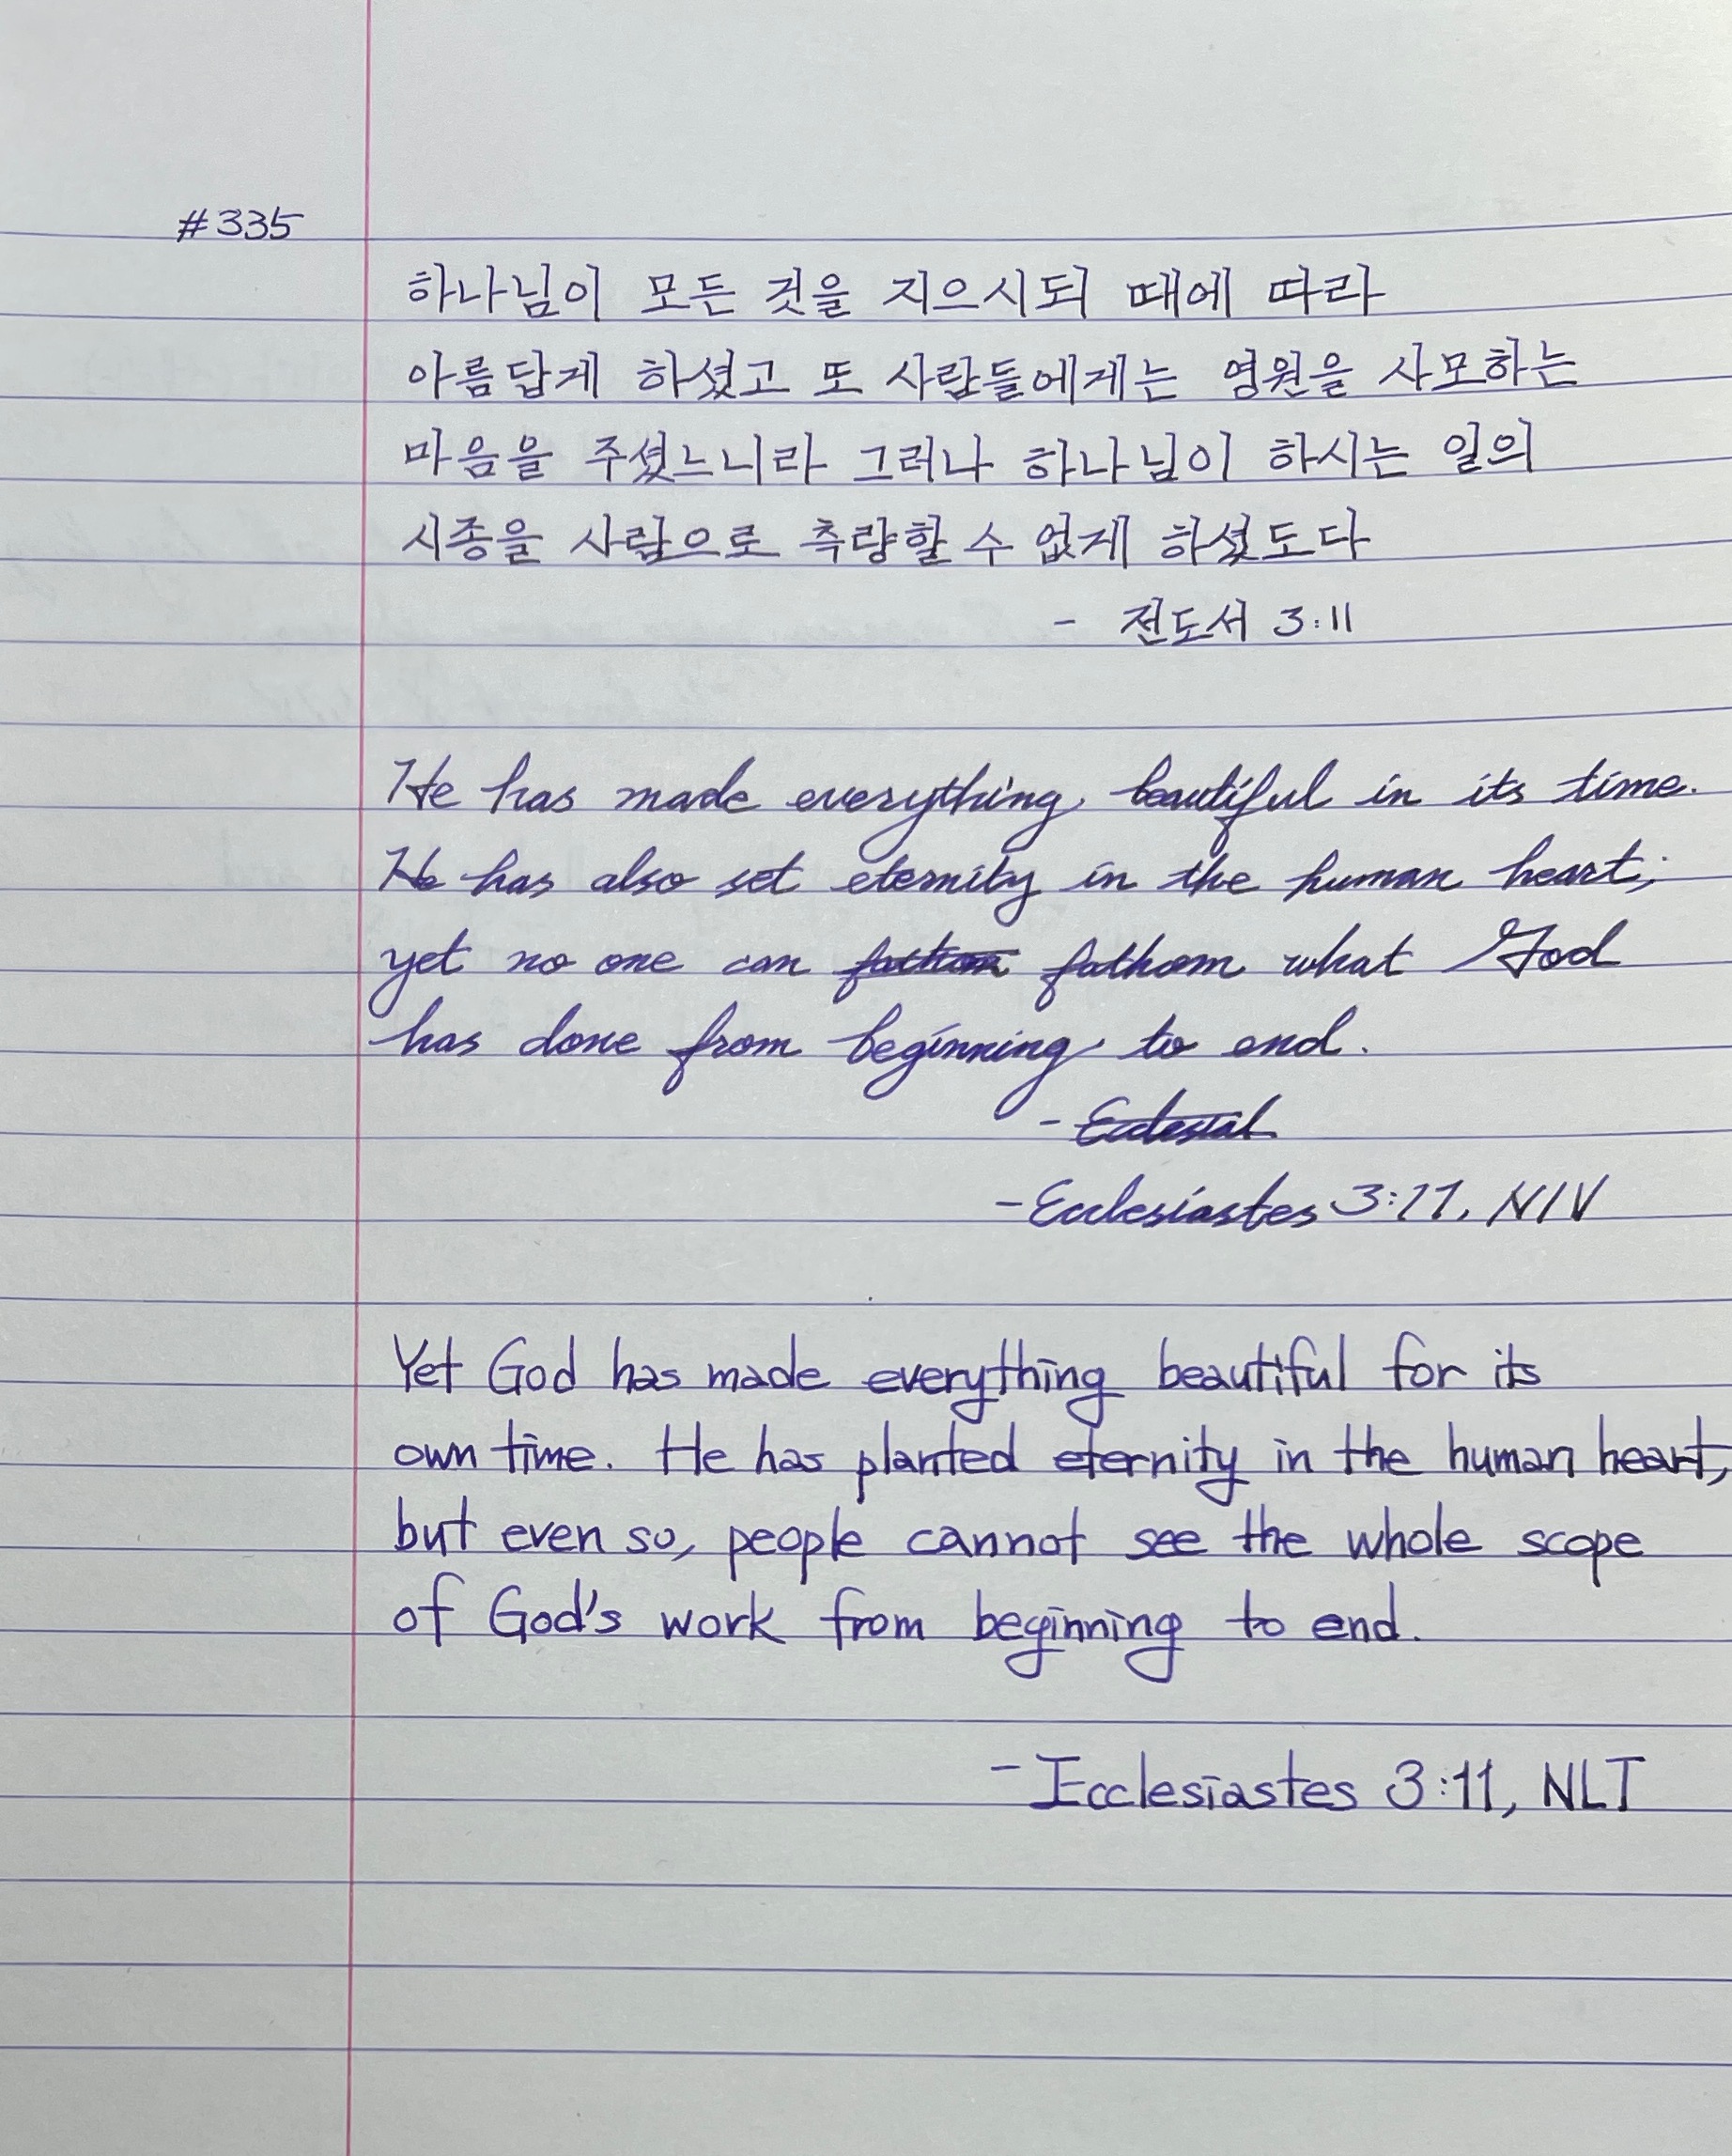 #335
하나님이 모든 것을 지으시되 때에 따라
아름답게 하셨고 또 사람들에게는 영원을 사모하는
마음을 주셨느니라 그러나 하나님이 하시는 일의
시종을 사람으로 측량할 수 없게 하셨도다
- 전도서 3:11
He has made everything beautiful in its time.
He has also set eternity in the human heart;
yet no one can fathom fathom what God
has done from beginning to end.
- Eclesial
- Ecclesiastes 3:11, NIV
Yet God has made everything beautiful for its
own time. He has planted eternity in the human heart,
but even so, people cannot see the whole scope
of God's work from beginning to end.
- Ecclesiastes 3:11, NLT